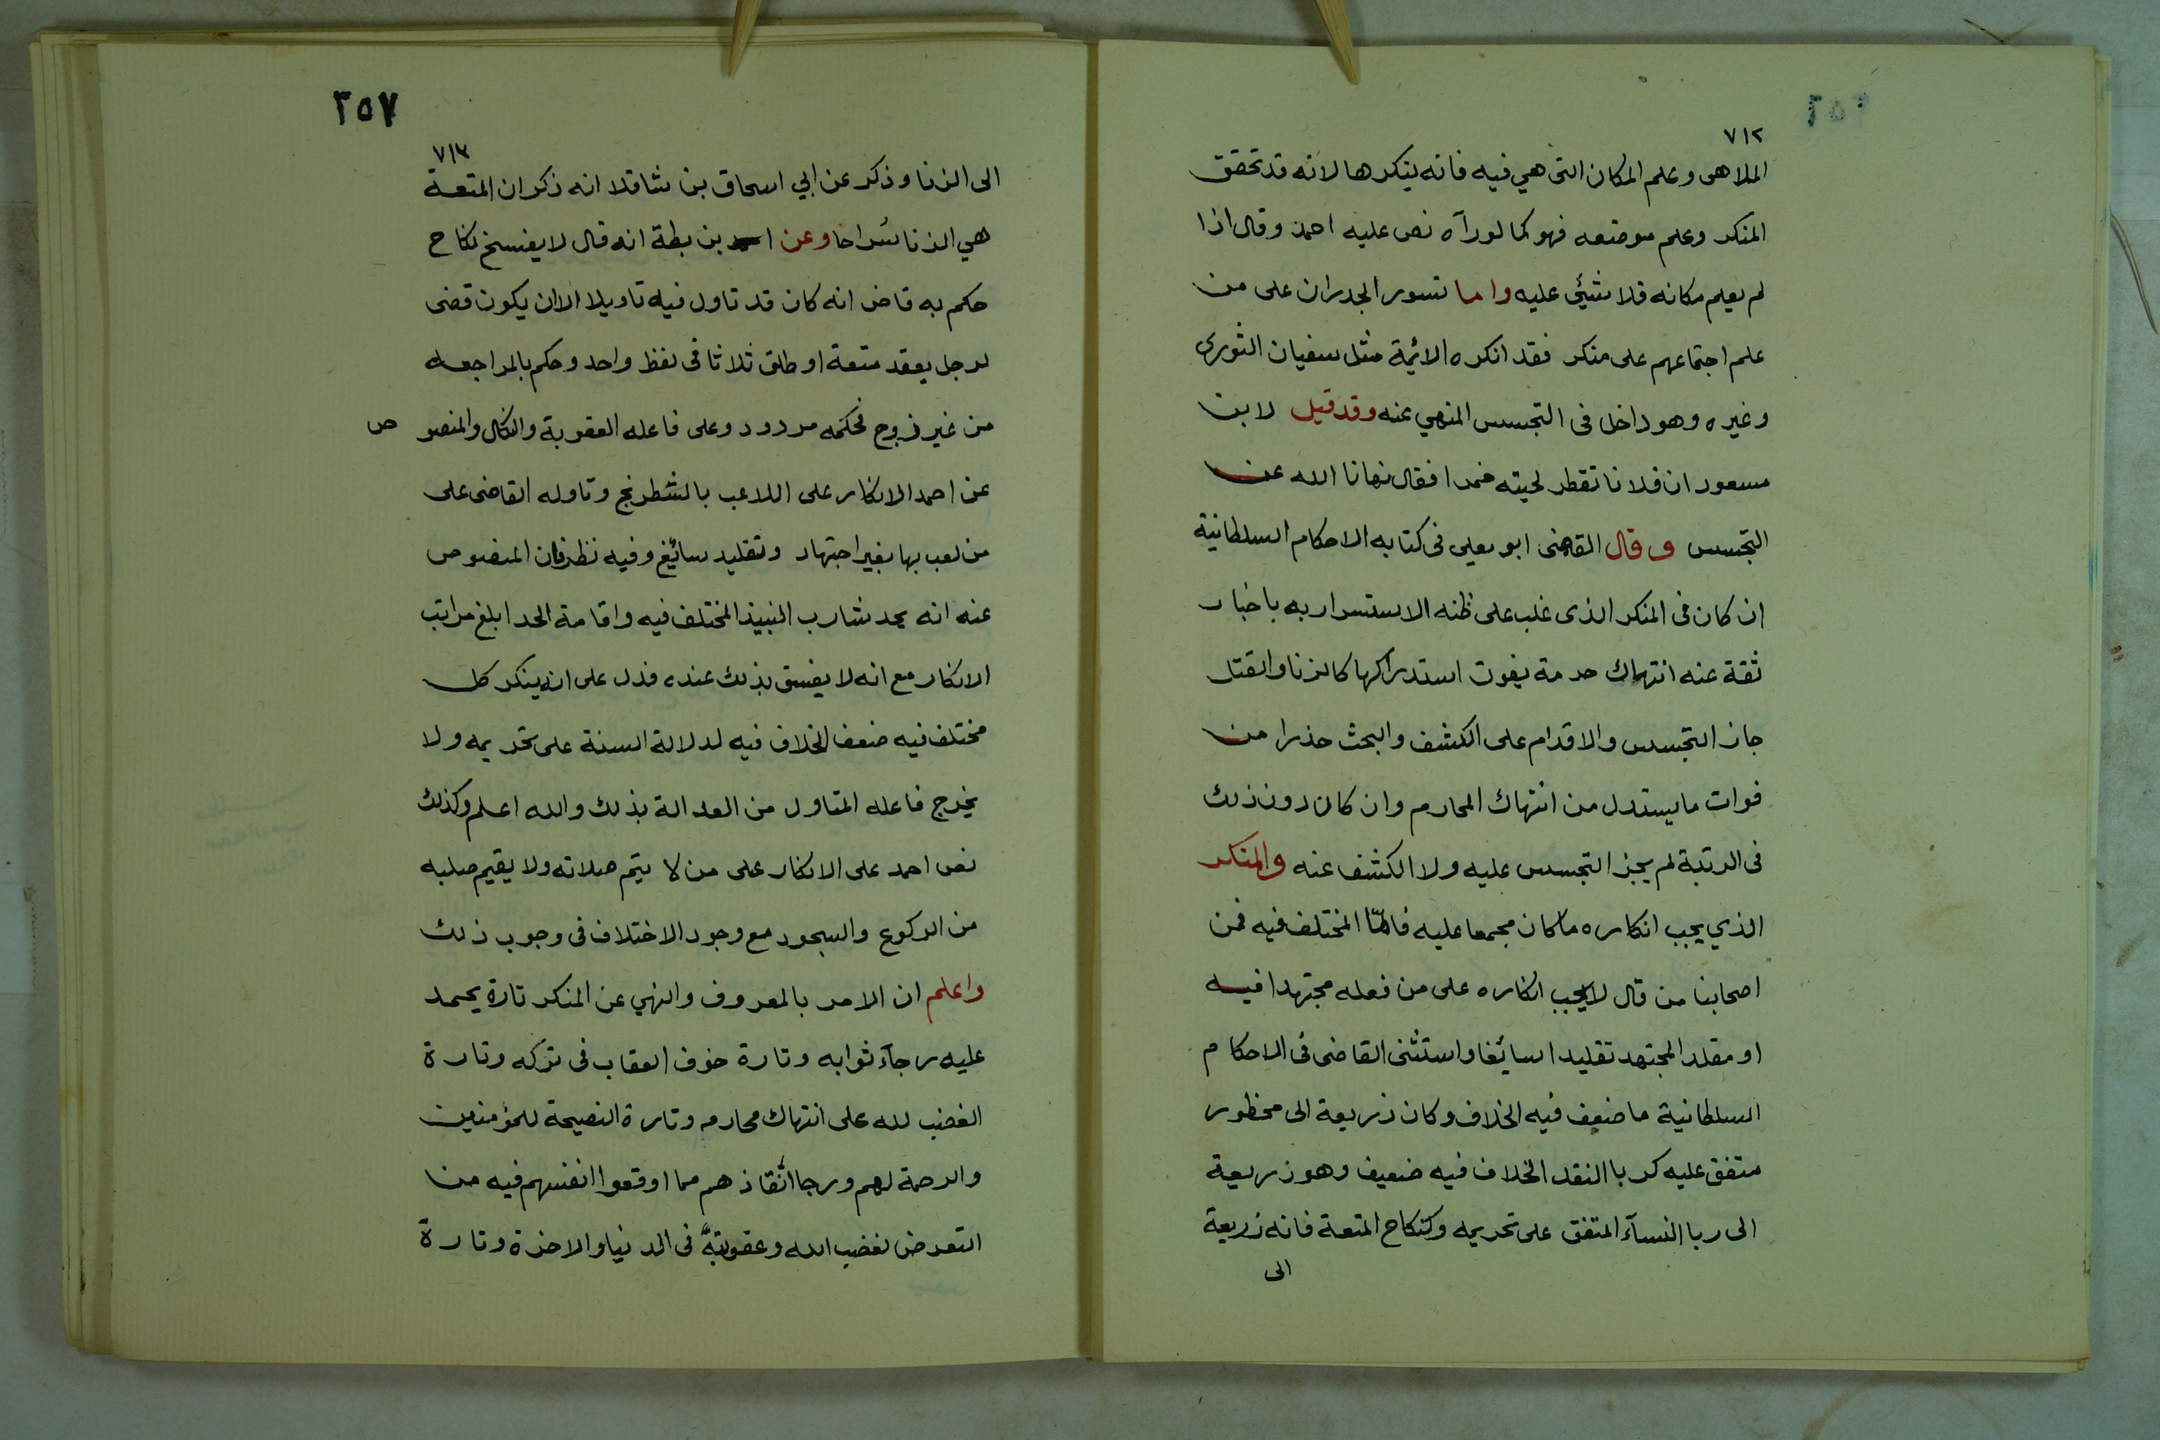 ٧١٢
الملاهى وعلم المكان التى هي فيه فانه ينكرها لانه قد تحقق
المنكر وعلم موضعه فهو كما لو رآه نص عليه احمد وقال اذا
لم يعلم مكانه فلا شيئ عليه واما تسور الجدران على من
علم اجتماعهم على منكر فقد انكره الائمة مثل سفيان الثورى
وغيره وهو داخل فى التجسس المنهي عنه وقد قيل لابن
مسعود ان فلانا تقطر لحيته خمرا فقال نهانا الله عن
التجسس وقال القاضى ابو يعلى فى كتابه الاحكام السلطانية
ان كان فى المنكر الذى غلب على ظنه الاستسرار به باخبار
ثقة عنه انتهاك حرمة يفوت استدراكها كالزنا والقتل
جاز التجسس والاقدام على الكشف والبحث حذرا من
فوات ما يستدل من انتهاك المحارم وان كان دون ذلك
فى الرتبة لم يجز التجسس عليه ولا الكشف عنه والمنكر
الذي يجب انكاره ما كان مجمعا عليه فامّا المختلف فيه فمن
اصحابنا من قال لا يجب انكاره على من فعله مجتهدا فيه
او مقلد المجتهد تقليدا سائغا واستثنى القاضى فى الاحكام
السلطانية ما ضعف فيه الخلاف وكان ذريعة الى محظور
متفق عليه كربا النقد الخلاف فيه ضعيف وهو ذريعة
الى ربا النسآء المتفق على تحريمه وكنكاح المتعة فانه ذريعة
الى
٣٥٧
٧١٣
الى الزنا وذكر عن ابي اسحاق بن شاقلا انه ذكر ان المتعة
هي الزنا صراحا وعن بن بطة انه قال لا يفسخ نكاح
حكم به قاض انه كان قد تاول فيه تاويلا الا ان يكون قضى
لرجل بعقد متعة او طلق ثلاثا فى لفظ واحد وحكم بالمراجعة
من غير زوج فحكمه مردود وعلى فاعله العقوبة والنكال والمنصو ص
عن احمد الانكار على اللاعب بالشطرنج وتاوله القاضى على
من لعب بها بغير اجتهاد وتقليد سائغ وفيه نظر فان المنصوص
عنه انه يحد شارب النبيذ المختلف فيه واقامة الحد ابلغ مراتب
الانكار مع انه لا يفسق بذلك عنده فدل على انه ينكر كل
مختلف فيه ضعف الخلاف فيه لدلالة السنة على تحريمه ولا
يخرج فاعله المتاول من العدالة بذلك والله اعلم وكذلك
نص احمد على الانكار على من لا يتم صلاته ولا يقيم صلبه
من الركوع والسجود مع وجود الاختلاف فى وجوب ذلك
واعلم ان الامر بالمعروف والنهي عن المنكر تارة يحمد
عليه رجآء ثوابه وتارة خوف العقاب فى تركه وتارة
الغضب لله على انتهاك محارمه وتارة النصيحة للمؤمنين
والرحمة لهم ورجا انقاذهم مما اوقعوا انفسهم فيه من
التعرض لغضب الله وعقوبته فى الدنيا والاخرة وتارة